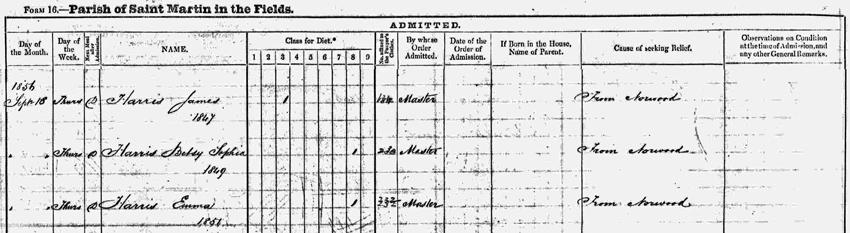 FORM 16.—Parish of Saint Martin in the Fields.
ADMITTED.
Day of the Month. Day of the Week. NAME. Class for Diet.* By whose Order Admitted. Date of the Order of Admission. If Born in the House, Name of Parent. Cause of seeking Relief. Observations on Condition at the time of Admission, and any other General Remarks.
1 2 3 4 5 6 7 8 9
1856
Sept 18 Thurs Harris James 1 Master From Norwood
1847
" " Thurs Harris Betsy Sophia 1 Master From Norwood
1849
" " Thurs Harris Emma 1 Master From Norwood
1851